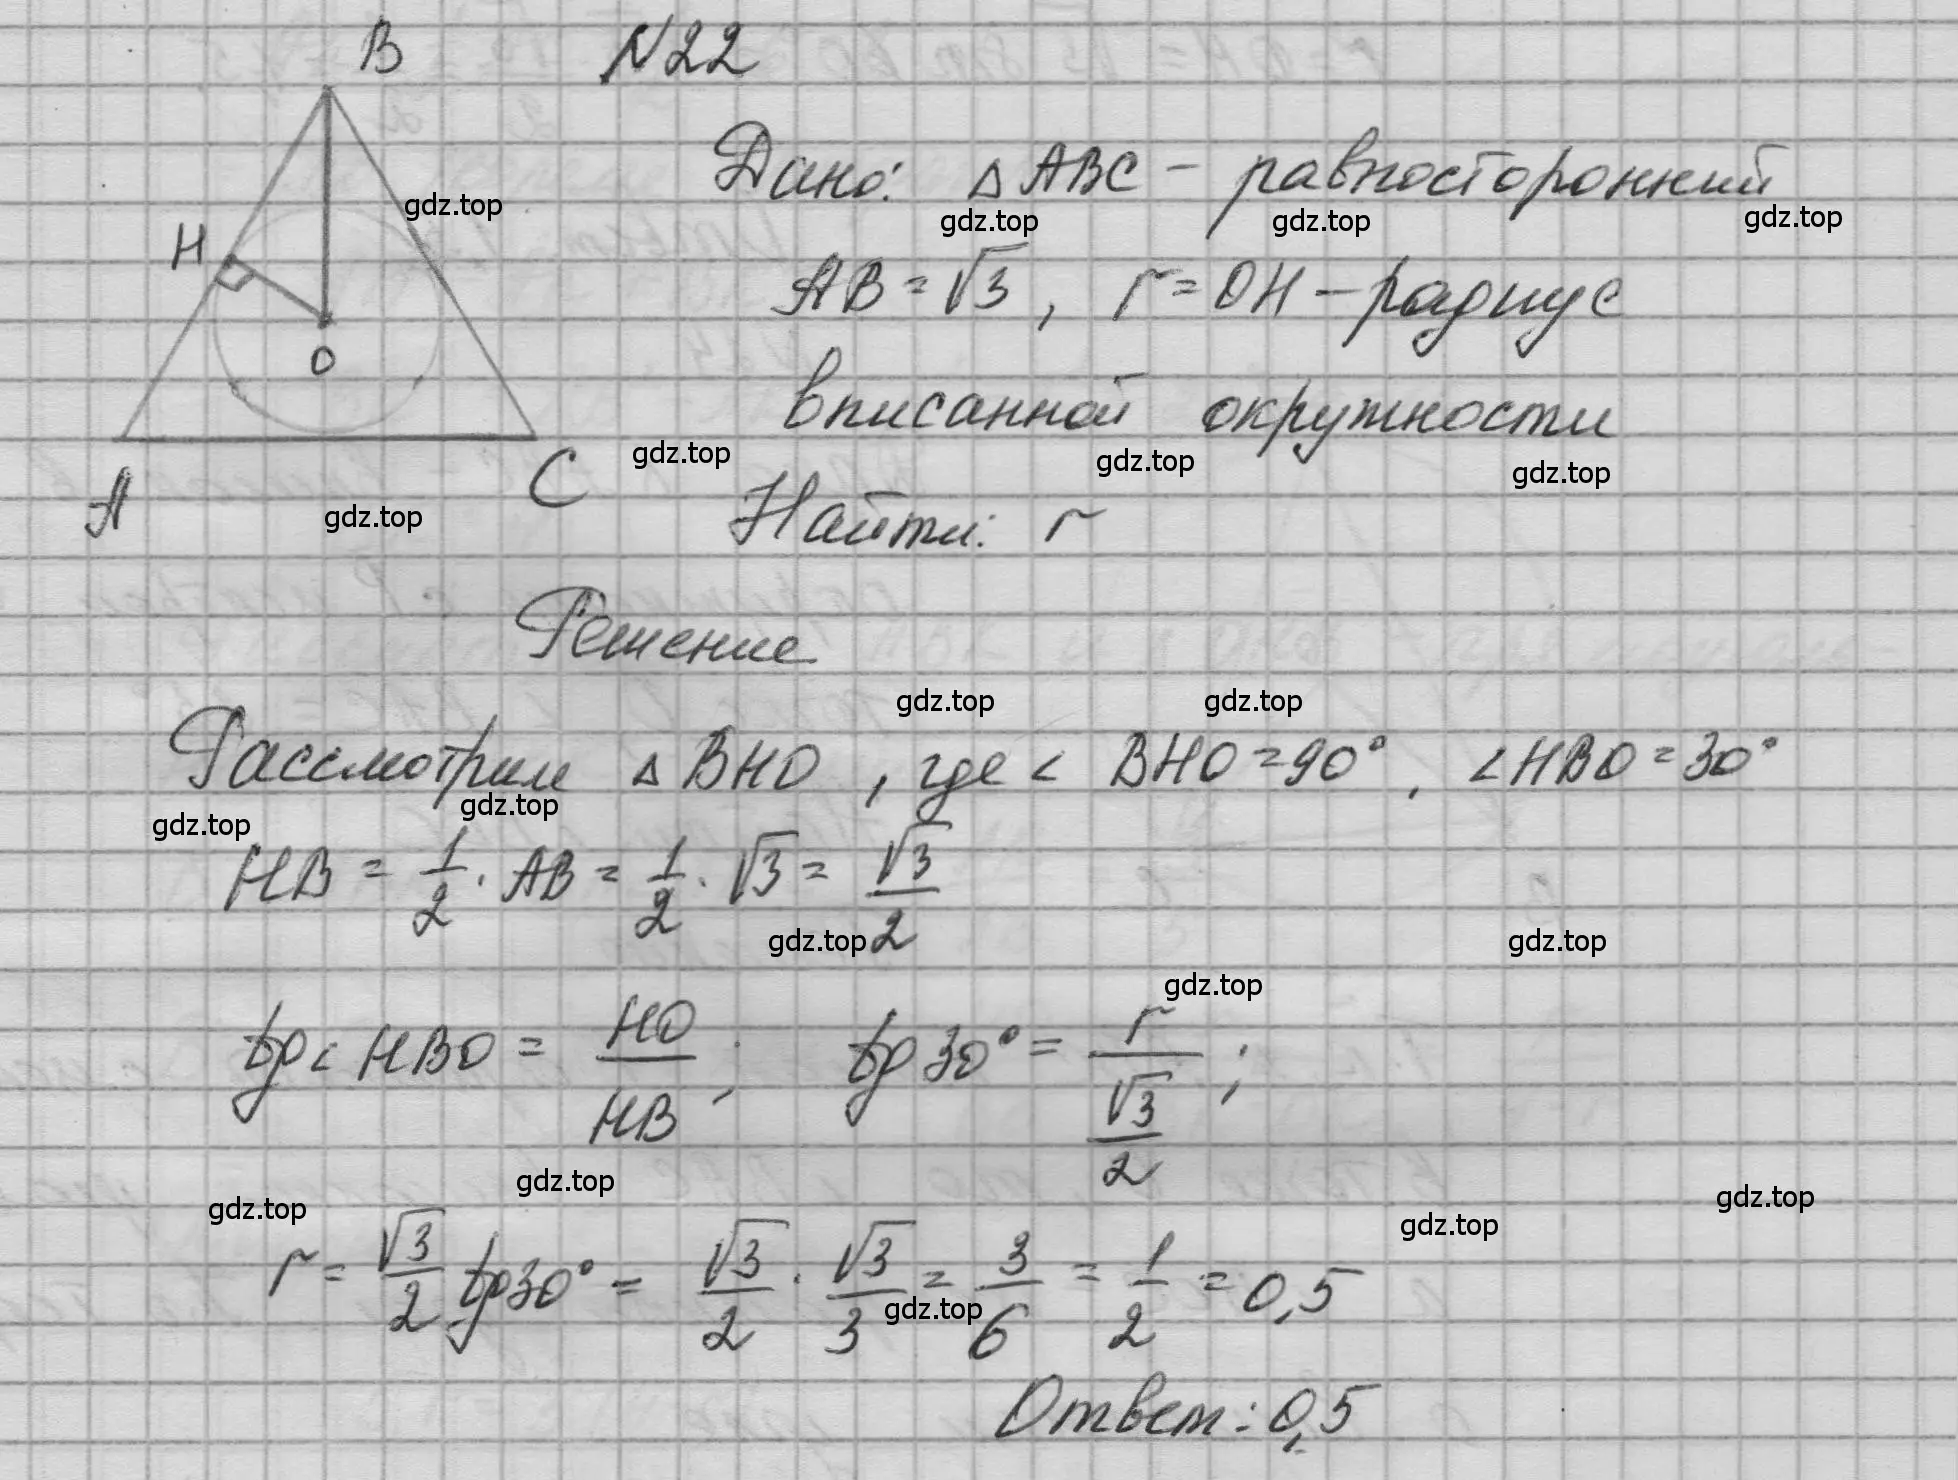 B
N22
Дано: △ ABC – равносторонний
gdz.top
gdz.top
gdz.top
gdz.top
H
AB = √3 , r = OH – радиус
O
вписанной окружности
gdz.top
gdz.top
gdz.top
A
C
gdz.top
Найти: r
Решение
gdz.top
gdz.top
Рассмотрим △ BHO , где ∠ BHO = 90° , ∠HBO = 30°
gdz.top
gdz.top
HB = 1/2 · AB = 1/2 · √3 = √3/2
gdz.top
gdz.top
gdz.top
tg∠ HBO = HO/HB ; tg 30° = r/(√3/2) ;
gdz.top
gdz.top
gdz.top
gdz.top
r = √3/2 tg30° = √3/2 · √3/3 = 3/6 = 1/2 = 0,5
gdz.top
Ответ: 0,5